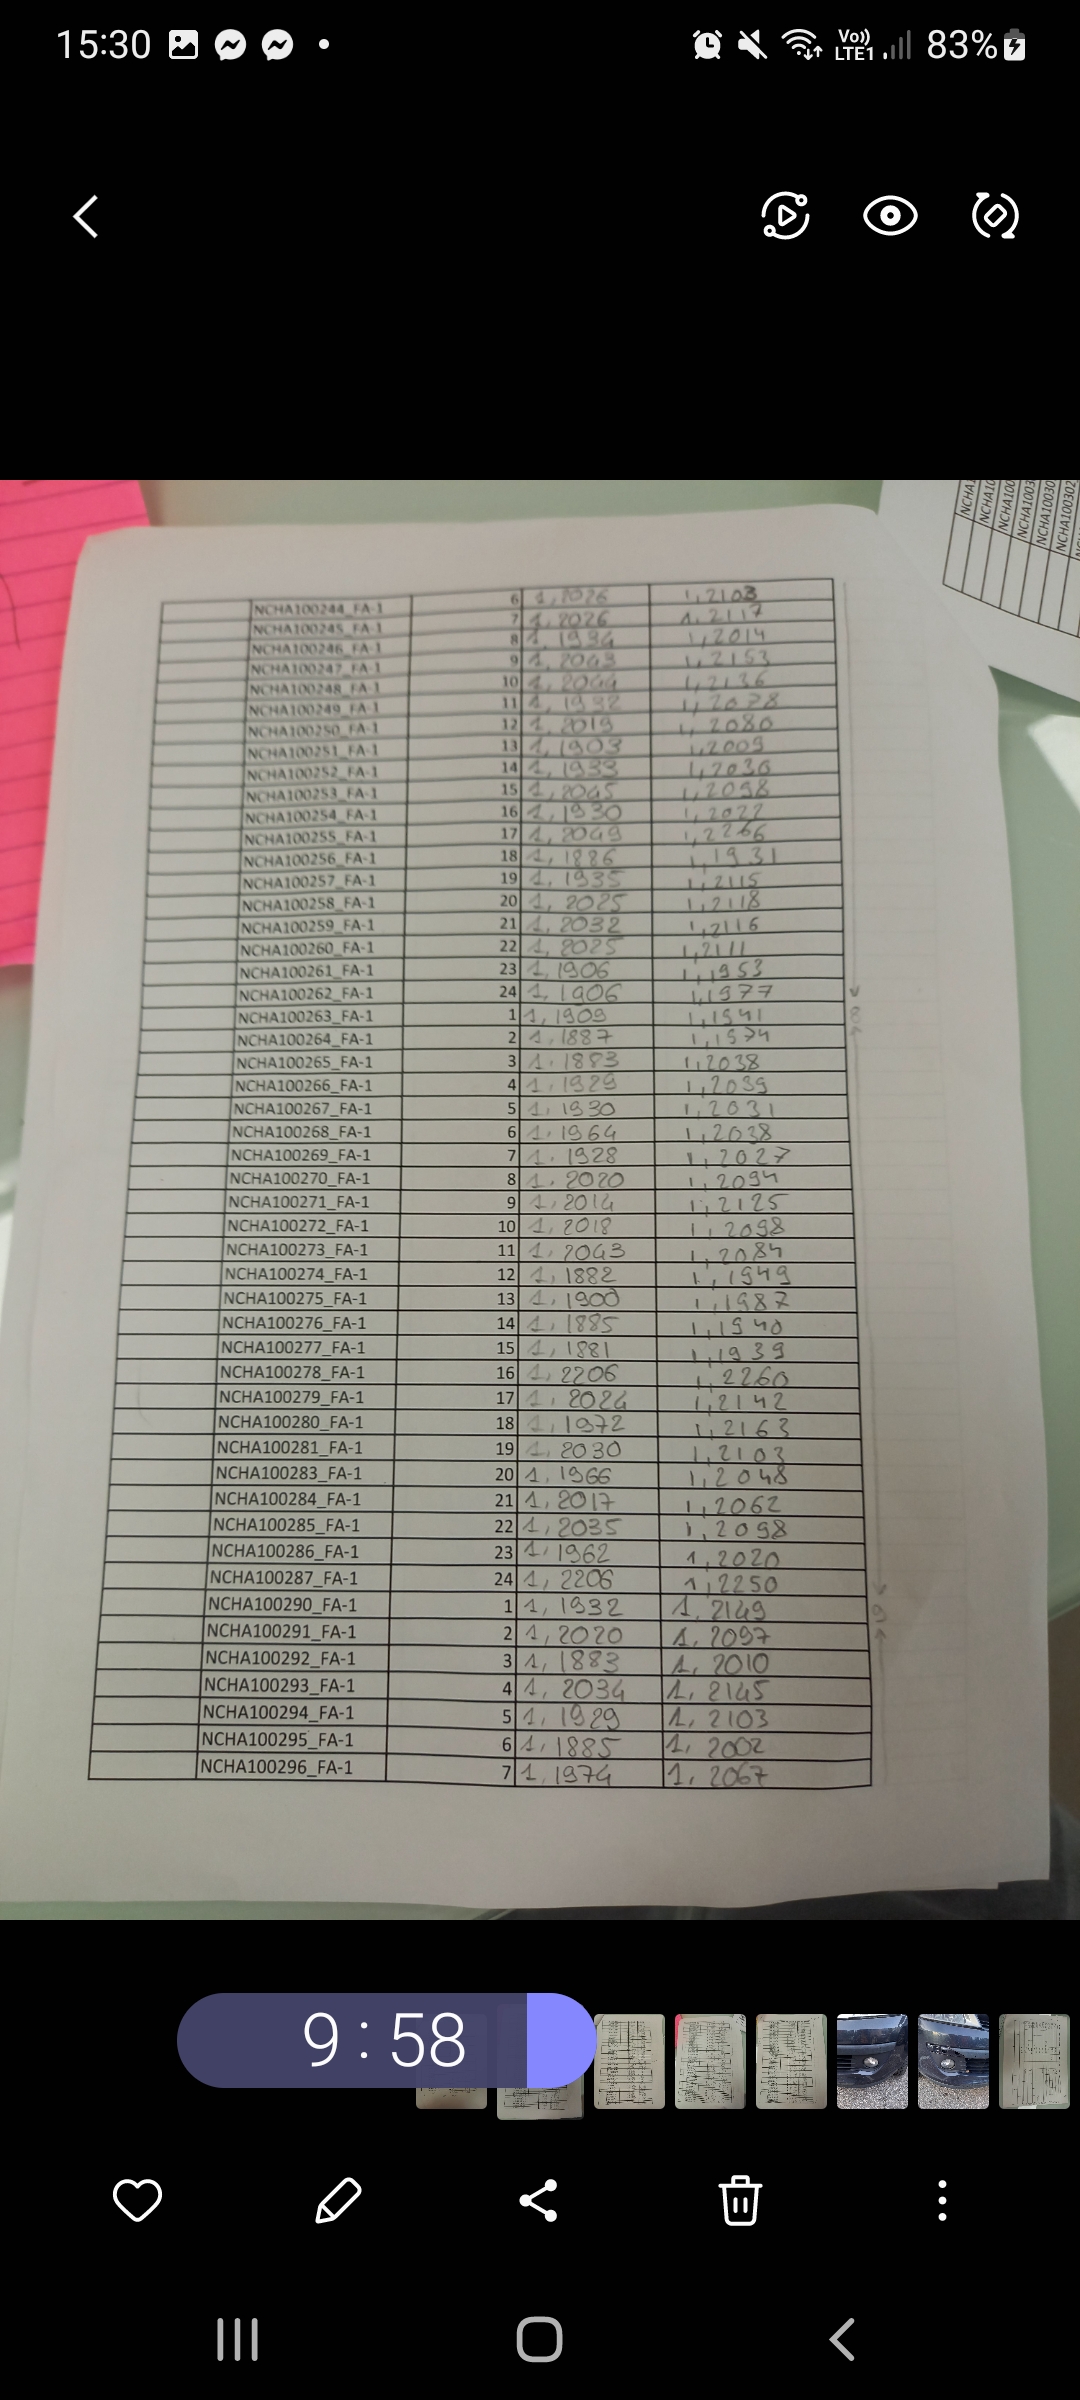 15:30 Vo)) LTE1 83%
NCHA1
NCHA10
NCHA100
NCHA1003
NCHA10030
NCHA100302
NCHA100244_FA-1 6 1,2026 1,2103
NCHA100245_FA-1 7 1,2026 1,2117
NCHA100246_FA-1 8 1,1934 1,2014
NCHA100247_FA-1 9 1,2043 1,2153
NCHA100248_FA-1 10 1,2044 1,2136
NCHA100249_FA-1 11 1,1932 1,2078
NCHA100250_FA-1 12 1,2019 1,2080
NCHA100251_FA-1 13 1,1903 1,2009
NCHA100252_FA-1 14 1,1933 1,2036
NCHA100253_FA-1 15 1,2045 1,2098
NCHA100254_FA-1 16 1,1930 1,2022
NCHA100255_FA-1 17 1,2049 1,2266
NCHA100256_FA-1 18 1,1886 1,1931
NCHA100257_FA-1 19 1,1935 1,2115
NCHA100258_FA-1 20 1,2025 1,2118
NCHA100259_FA-1 21 1,2032 1,2116
NCHA100260_FA-1 22 1,2025 1,2111
NCHA100261_FA-1 23 1,1906 1,1953
NCHA100262_FA-1 24 1,1906 1,1977
NCHA100263_FA-1 1 1,1909 1,1941
NCHA100264_FA-1 2 1,1887 1,1974
NCHA100265_FA-1 3 1,1883 1,2038
NCHA100266_FA-1 4 1,1929 1,2039
NCHA100267_FA-1 5 1,1930 1,2031
NCHA100268_FA-1 6 1,1964 1,2038
NCHA100269_FA-1 7 1,1928 1,2027
NCHA100270_FA-1 8 1,2020 1,2094
NCHA100271_FA-1 9 1,2014 1,2125
NCHA100272_FA-1 10 1,2018 1,2098
NCHA100273_FA-1 11 1,2043 1,2084
NCHA100274_FA-1 12 1,1882 1,1949
NCHA100275_FA-1 13 1,1900 1,1987
NCHA100276_FA-1 14 1,1885 1,1940
NCHA100277_FA-1 15 1,1881 1,1939
NCHA100278_FA-1 16 1,2206 1,2260
NCHA100279_FA-1 17 1,2024 1,2142
NCHA100280_FA-1 18 1,1972 1,2163
NCHA100281_FA-1 19 1,2030 1,2103
NCHA100283_FA-1 20 1,1966 1,2048
NCHA100284_FA-1 21 1,2017 1,2062
NCHA100285_FA-1 22 1,2035 1,2098
NCHA100286_FA-1 23 1,1962 1,2020
NCHA100287_FA-1 24 1,2206 1,2250
NCHA100290_FA-1 1 1,1932 1,2149
NCHA100291_FA-1 2 1,2020 1,2097
NCHA100292_FA-1 3 1,1883 1,2010
NCHA100293_FA-1 4 1,2034 1,2145
NCHA100294_FA-1 5 1,1929 1,2103
NCHA100295_FA-1 6 1,1885 1,2002
NCHA100296_FA-1 7 1,1974 1,2067
8
9
9:58